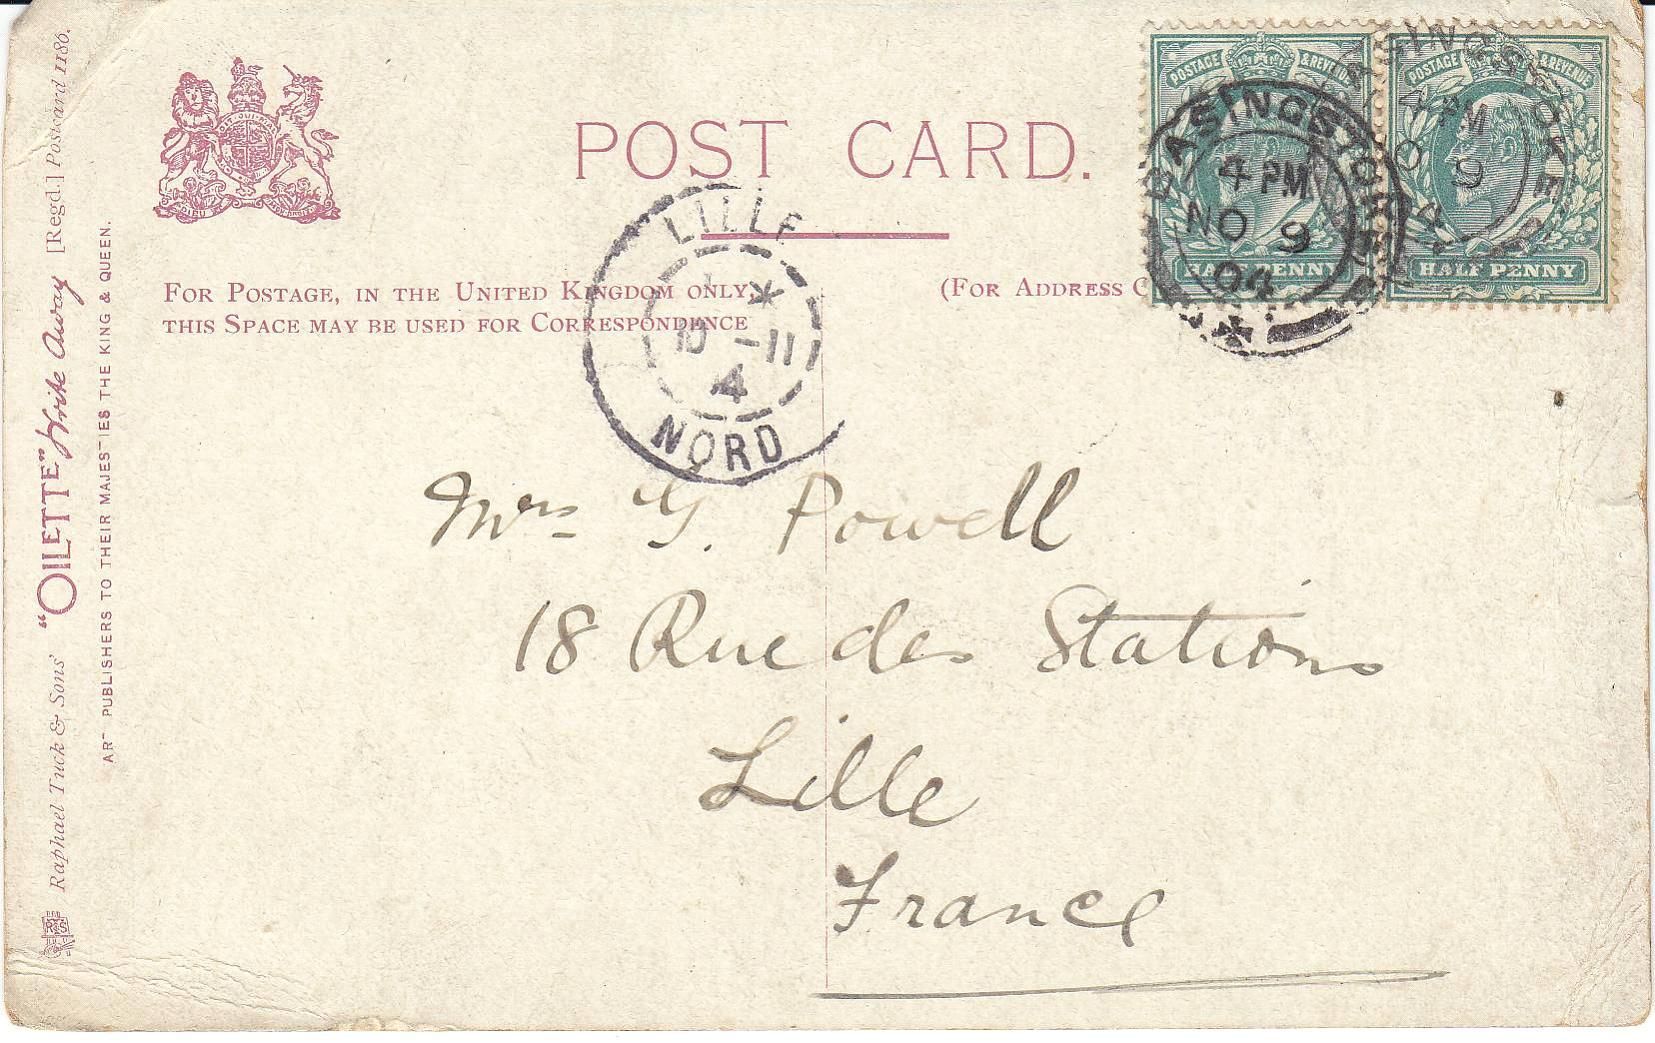 POST CARD.
FOR POSTAGE, IN THE UNITED KINGDOM ONLY,
THIS SPACE MAY BE USED FOR CORRESPONDENCE
(FOR ADDRESS
POSTAGE & REVENUE
HALF PENNY
POSTAGE & REVENUE
HALF PENNY
BASINGSTOKE
4 PM
NO 9
04
BASINGSTOKE
4 PM
NO 9
04
LILLE
10 - 11
4
NORD
Mrs G. Powell
18 Rue des Stations
Lille
France
Raphael Tuck & Sons' "OILETTE" Write Away [Regd.] Postcard 1186.
ART PUBLISHERS TO THEIR MAJESTIES THE KING & QUEEN.